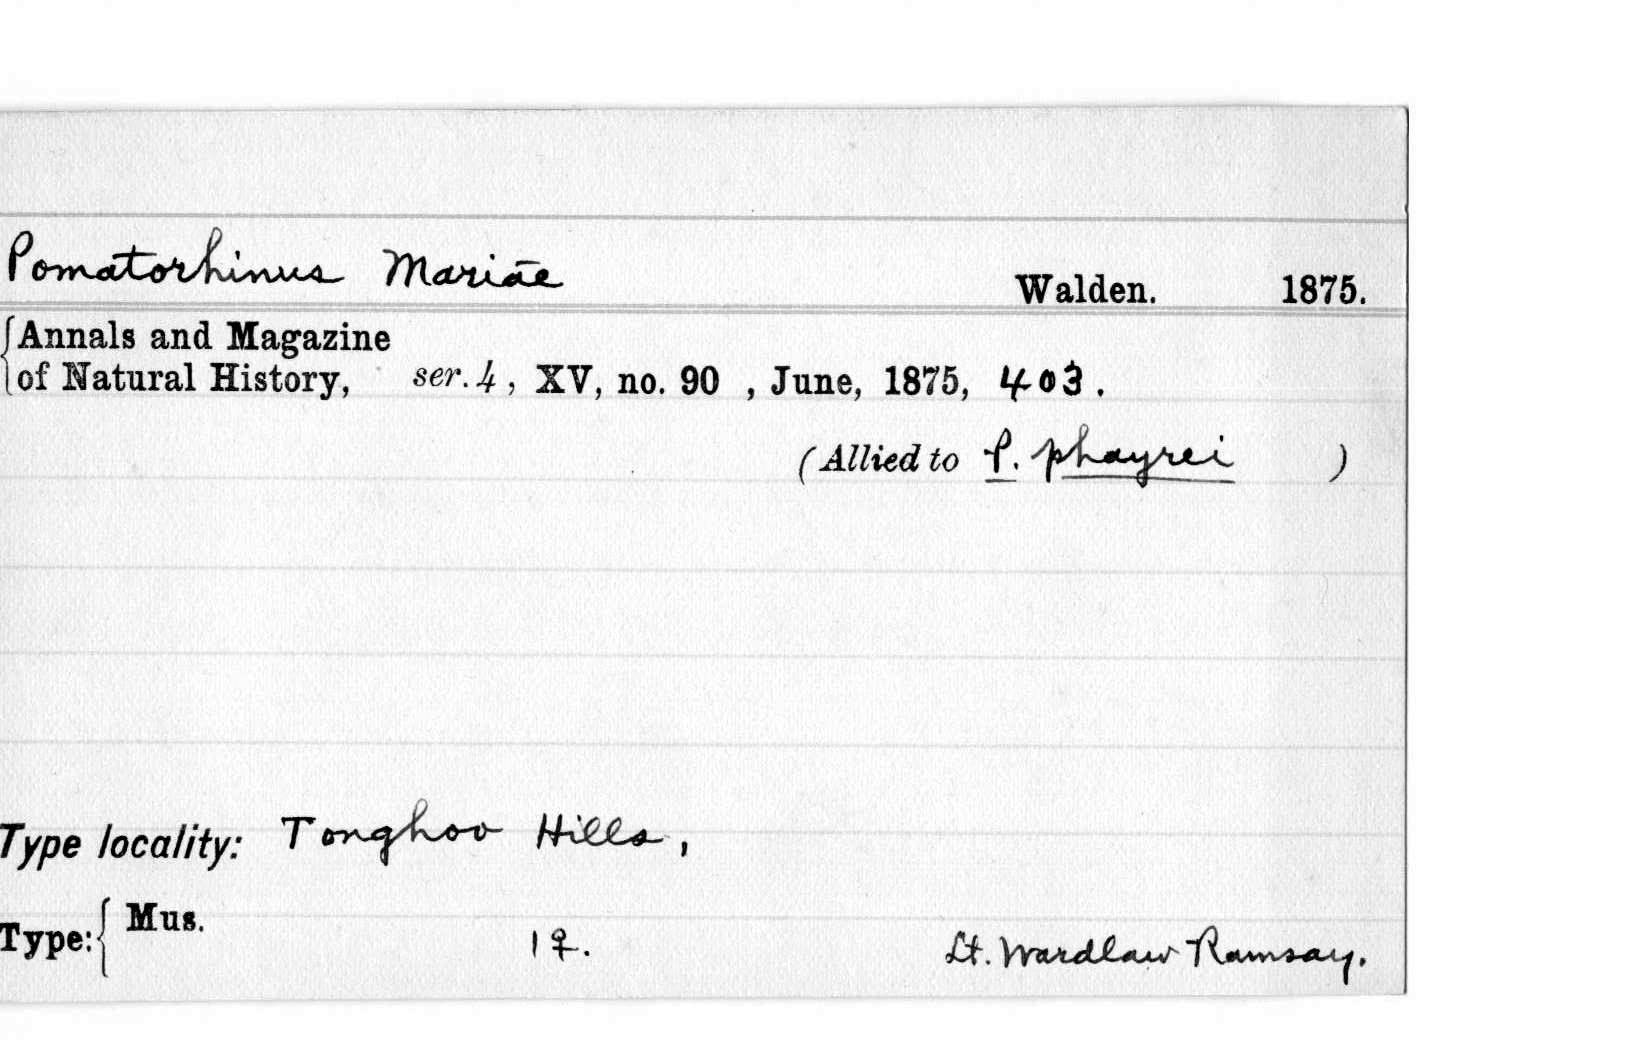 Pomatorhinus Mariae Walden. 1875.
{Annals and Magazine
of Natural History, ser. 4, XV, no. 90 , June, 1875, 403.
(Allied to P. phayrei )
Type locality: Tonghoo Hills,
Type:{ Mus.
1♀. Lt. Wardlaw Ramsay.